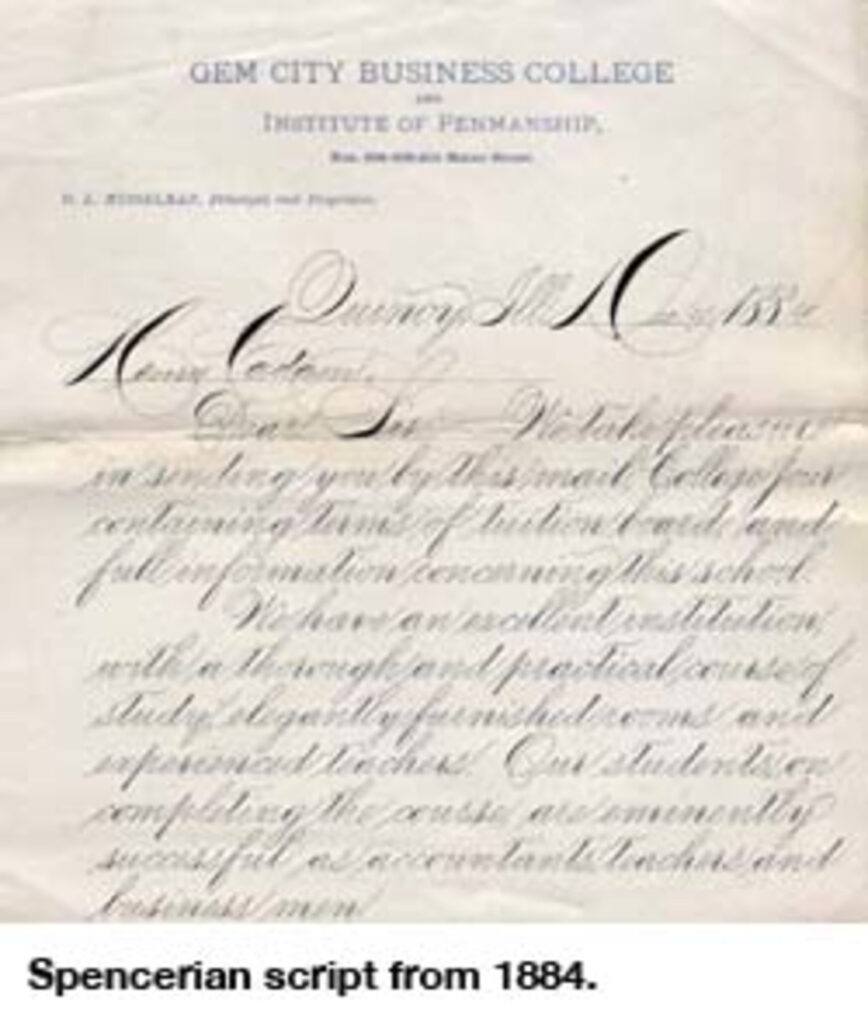 GEM CITY BUSINESS COLLEGE
AND
INSTITUTE OF PENMANSHIP,
D. L. MUSSELMAN, Principal and Proprietor.
Quincy, Ill 1884
Dear Sir We take pleasure
in sending you by this mail College Jour
containing terms of tuition board and
full information concerning this school.
We have an excellent institution,
with a thorough and practical course of
study, elegantly furnished rooms and
experienced teachers. Our students on
completing the course, are eminently
successful as accountants, teachers and
business men
Spencerian script from 1884.